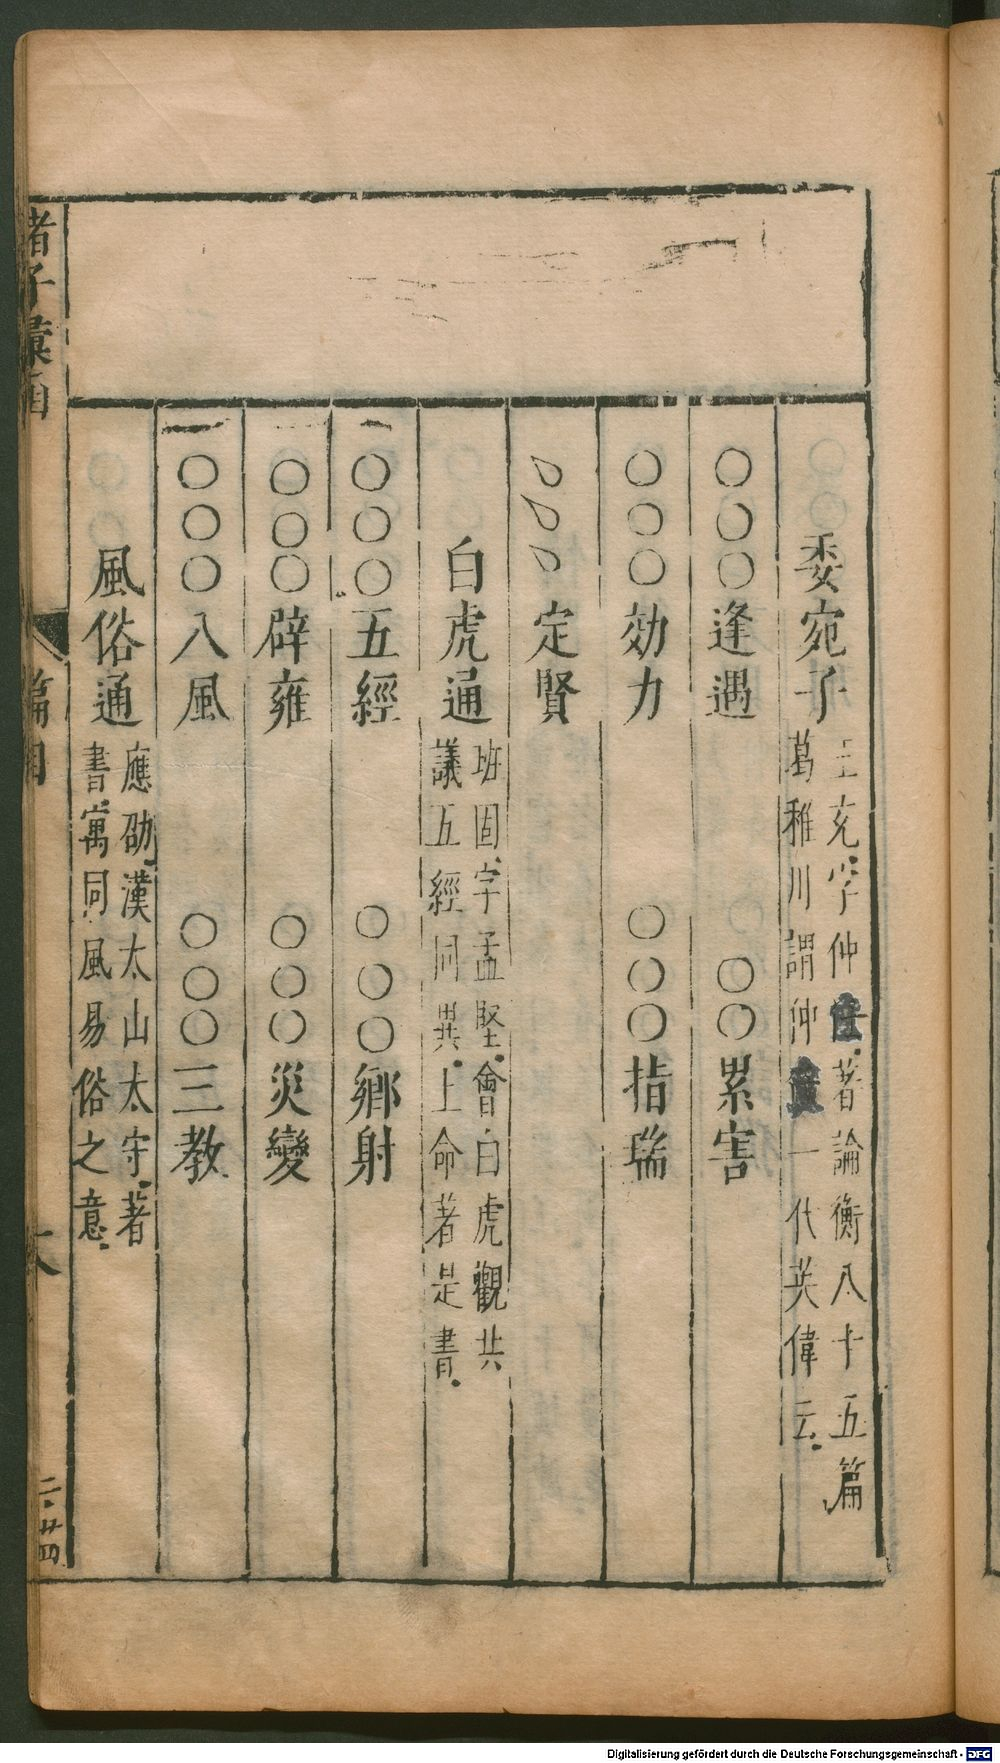 委宛子 王充字仲任著論衡八十五篇
葛稚川謂仲任一代英偉云
○○○逢遇 ○○累害
○○○効力 ○○○指瑞
定賢
白虎通 班固字孟堅會白虎觀共
議五經同異上命著是書
○○○五經 ○○○鄉射
○○○辟雍 ○○○災變
○○○八風 ○○○三教
風俗通 應劭漢太山太守著
書寓同風易俗之意
諸子彙函 篇目 六
二·廿四
Digitalisierung gefördert durch die Deutsche Forschungsgemeinschaft - DFG